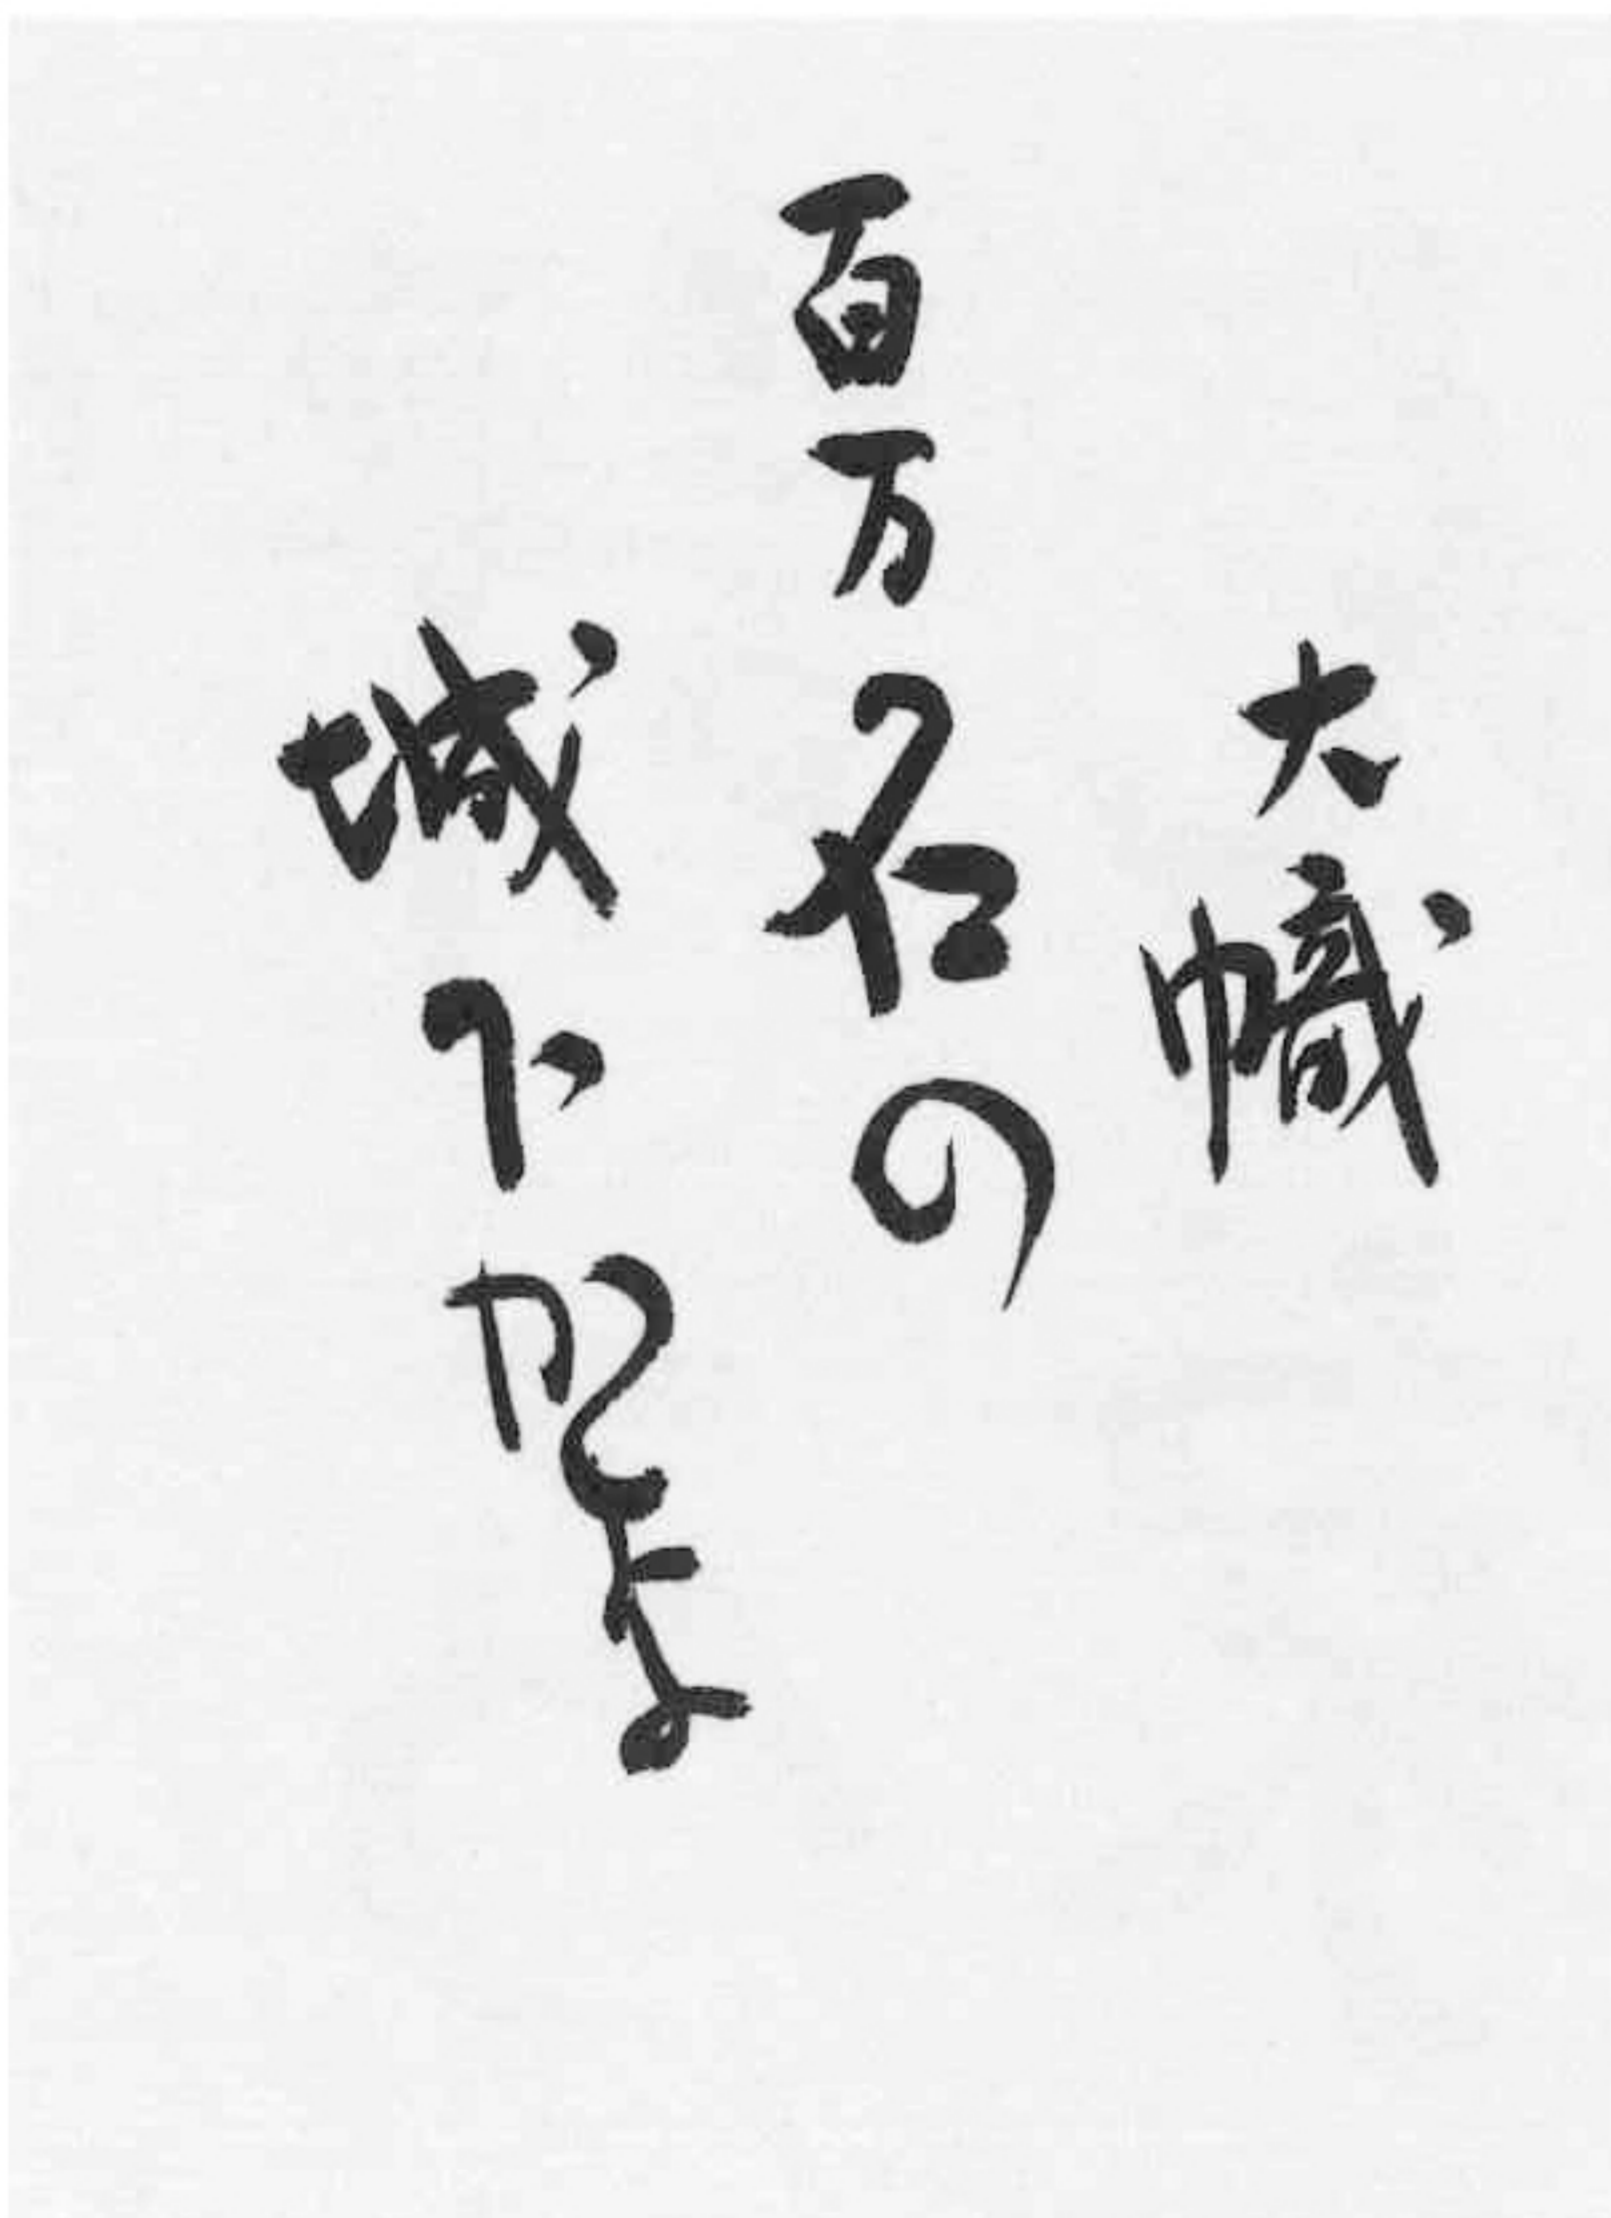 大幟
百万石の
城下かな